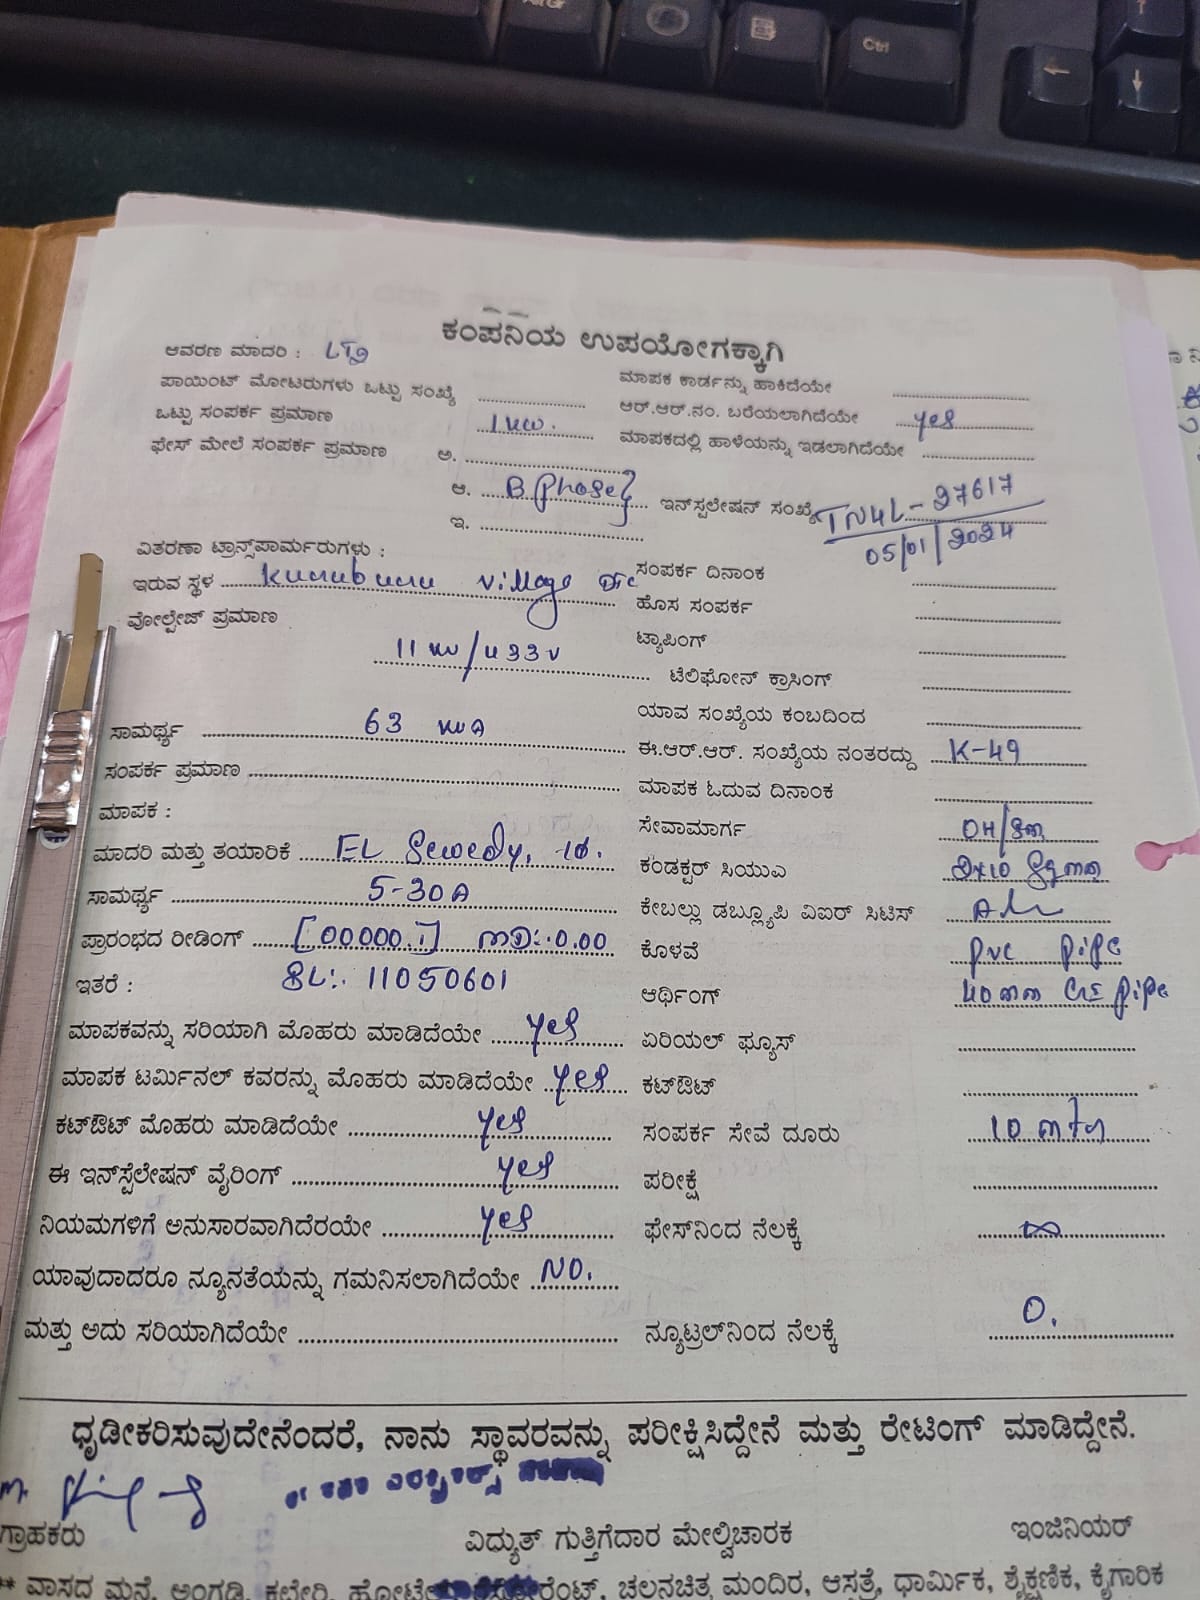 Alt Gr
Ctrl
ಕಂಪನಿಯ ಉಪಯೋಗಕ್ಕಾಗಿ
ಆವರಣ ಮಾದರಿ : LT2
ಪಾಯಿಂಟ್ ಮೋಟರುಗಳು ಒಟ್ಟು ಸಂಖ್ಯೆ
ಮಾಪಕ ಕಾರ್ಡನ್ನು ಹಾಕಿದೆಯೇ
ಒಟ್ಟು ಸಂಪರ್ಕ ಪ್ರಮಾಣ 1kw.
ಆರ್.ಆರ್.ನಂ. ಬರೆಯಲಾಗಿದೆಯೇ yes
ಫೇಸ್ ಮೇಲೆ ಸಂಪರ್ಕ ಪ್ರಮಾಣ ಅ.
ಮಾಪಕದಲ್ಲಿ ಹಾಳೆಯನ್ನು ಇಡಲಾಗಿದೆಯೇ
ಆ. B Phase
ಇನ್‌ಸ್ಟಲೇಷನ್ ಸಂಖ್ಯೆ TN4L-27617
05/01/2024
ಇ.
ವಿತರಣಾ ಟ್ರಾನ್ಸ್‌ಪಾರ್ಮರುಗಳು :
ಸಂಪರ್ಕ ದಿನಾಂಕ
ಇರುವ ಸ್ಥಳ Kuruburu village
ಹೊಸ ಸಂಪರ್ಕ
ವೋಲ್ಟೇಜ್ ಪ್ರಮಾಣ
ಟ್ಯಾಪಿಂಗ್
11 kv/433v
ಟೆಲಿಫೋನ್ ಕ್ರಾಸಿಂಗ್
ಯಾವ ಸಂಖ್ಯೆಯ ಕಂಬದಿಂದ
ಸಾಮರ್ಥ್ಯ 63 kvA
ಈ.ಆರ್.ಆರ್. ಸಂಖ್ಯೆಯ ನಂತರದ್ದು K-49
ಸಂಪರ್ಕ ಪ್ರಮಾಣ
ಮಾಪಕ ಓದುವ ದಿನಾಂಕ
ಮಾಪಕ :
ಸೇವಾಮಾರ್ಗ OH/sm
ಮಾದರಿ ಮತ್ತು ತಯಾರಿಕೆ EL Sewedy, 1ø.
ಕಂಡಕ್ಟರ್ ಸಿಯುಎ 2x10 Sqmm
ಸಾಮರ್ಥ್ಯ 5-30A
ಕೇಬಲ್ಲು ಡಬ್ಲ್ಯೂಪಿ ವಿಐರ್ ಸಿಟಿಸ್
ಪ್ರಾರಂಭದ ರೀಡಿಂಗ್ [00000.1] MD:-0.00
ಕೊಳವೆ pvc pipe
ಇತರೆ : SL:- 11050601
ಆರ್ಥಿಂಗ್ 40mm GI pipe
ಮಾಪಕವನ್ನು ಸರಿಯಾಗಿ ಮೊಹರು ಮಾಡಿದೆಯೇ yes
ಏರಿಯಲ್ ಫ್ಯೂಸ್
ಮಾಪಕ ಟರ್ಮಿನಲ್ ಕವರನ್ನು ಮೊಹರು ಮಾಡಿದೆಯೇ yes
ಕಟ್‌ಔಟ್
ಕಟ್‌ಔಟ್ ಮೊಹರು ಮಾಡಿದೆಯೇ yes
ಸಂಪರ್ಕ ಸೇವೆ ದೂರು 10 mtr
ಈ ಇನ್‌ಸ್ಟೆಲೇಷನ್ ವೈರಿಂಗ್ yes
ಪರೀಕ್ಷೆ
ನಿಯಮಗಳಿಗೆ ಅನುಸಾರವಾಗಿದೆರಯೇ yes
ಫೇಸ್‌ನಿಂದ ನೆಲಕ್ಕೆ ∞
ಯಾವುದಾದರೂ ನ್ಯೂನತೆಯನ್ನು ಗಮನಿಸಲಾಗಿದೆಯೇ NO.
ಮತ್ತು ಅದು ಸರಿಯಾಗಿದೆಯೇ
ನ್ಯೂಟ್ರಲ್‌ನಿಂದ ನೆಲಕ್ಕೆ 0.
ಧೃಡೀಕರಿಸುವುದೇನೆಂದರೆ, ನಾನು ಸ್ಥಾವರವನ್ನು ಪರೀಕ್ಷಿಸಿದ್ದೇನೆ ಮತ್ತು ರೇಟಿಂಗ್ ಮಾಡಿದ್ದೇನೆ.
ಗ್ರಾಹಕರು
ವಿದ್ಯುತ್ ಗುತ್ತಿಗೆದಾರ ಮೇಲ್ವಿಚಾರಕ
ಇಂಜಿನಿಯರ್
** ವಾಸದ ಮನೆ, ಅಂಗಡಿ, ಕಛೇರಿ, ಚಲನಚಿತ್ರ ಮಂದಿರ, ಆಸ್ಪತ್ರೆ, ಧಾರ್ಮಿಕ, ಶೈಕ್ಷಣಿಕ, ಕೈಗಾರಿಕ